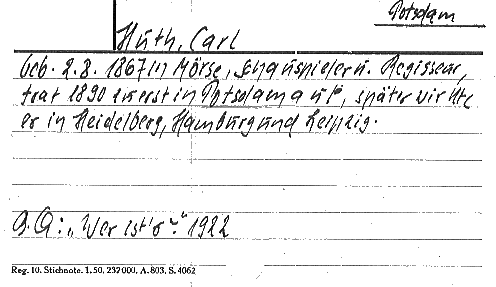 Potsdam
Huth, Carl
Geb. 2.8. 1867 in Mörse, Schauspieler u. Regisseur,
trat 1890 zuerst in Potsdam auf, später wirkte
er in Heidelberg, Hamburg und Leipzig.
G.Q.: „Wer ist's?" 1922
Reg. 10. Stichnote. 1. 50. 237000. A. 803. S. 4062